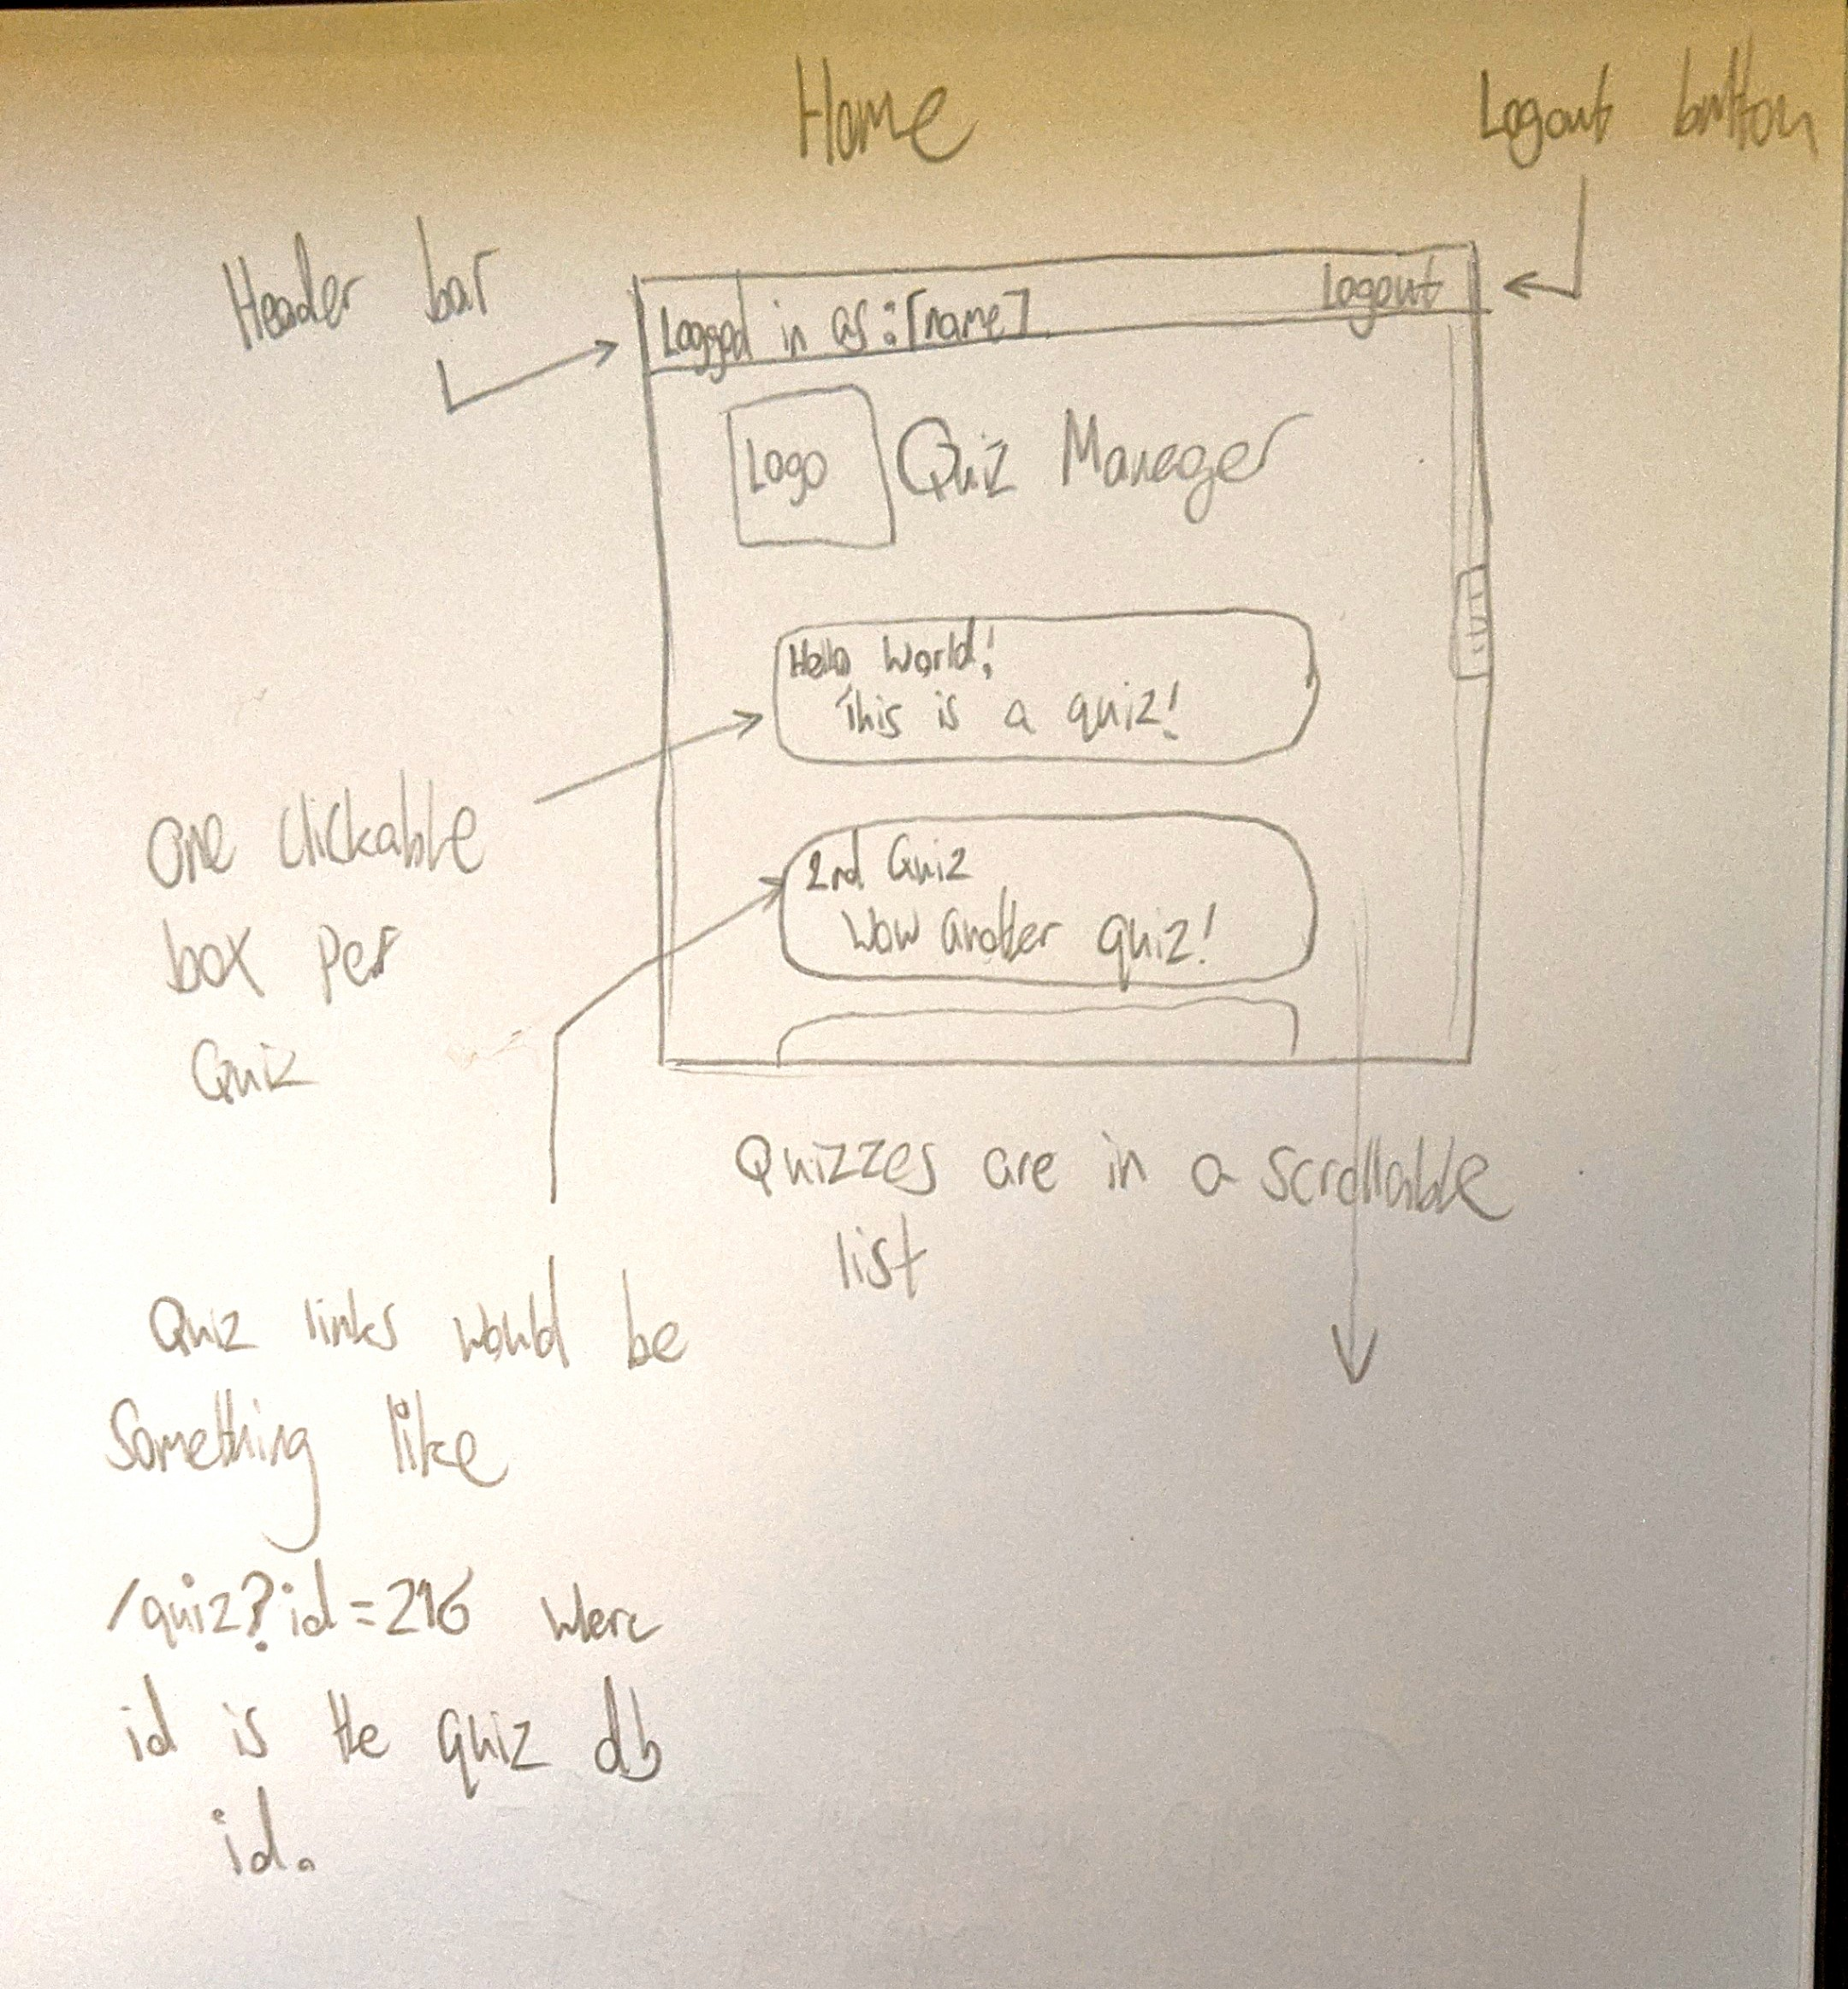 Home
Logout button
Header bar
Logged in as: [name]
Logout
Logo
Quiz Manager
Hello World!
This is a quiz!
One clickable
box per
Quiz
2nd Quiz
Wow another quiz!
Quizzes are in a scrollable
list
Quiz links would be
something like
/quiz?id=216 where
id is the quiz db
id.